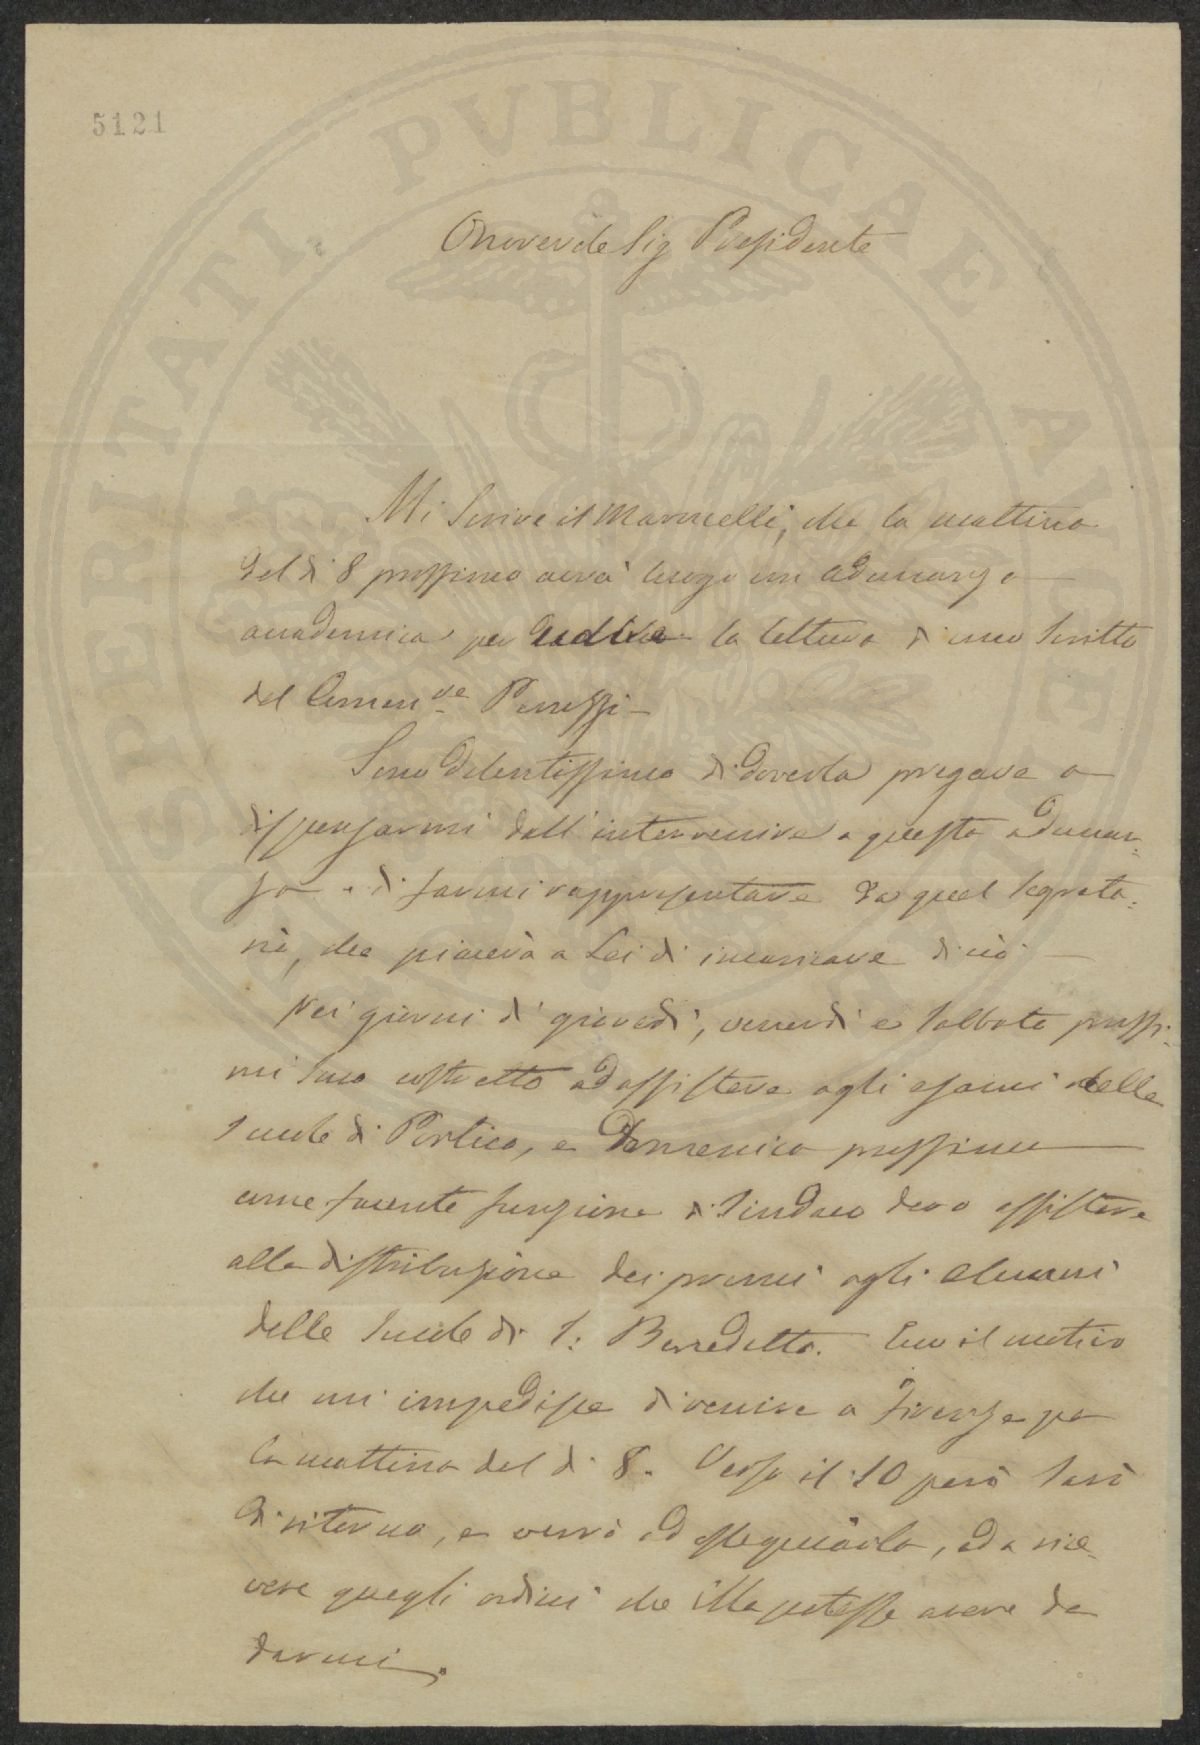 5121
PROSPERITATI PVBLICAE AVGENDAE
Onorevole Sig Presidente
Mi scrive il Marucelli, che la mattina
del dì 8 prossimo avrà luogo un adunanza
accademica per udire la lettura di uno scritto
del Commen.re
Sono dolentissimo di doverla pregare a
dispensarmi dall'intervenire a questa adunan:
za e di farmi rappresentare da quel segreta:
rio, che piacerà a Lei di incaricare di ciò
Nei giorni di giovedì, venerdì e sabbato prossi:
mi sono costretto ad assistere agli esami delle
scuole di Portico, e Domenica prossima
come facente funzione di Sindaco devo assistere
alla distribuzione dei premi agli alunni
delle scuole di S: Benedetto. Ecco il motivo
che mi impedisce di venire a Firenze per
la mattina del dì 8. Verso il 10 però sarò
di ritorno, e verrò ad ossequiarla, ed a rice:
vere quegli ordini che Ella potesse avere da
darmi.